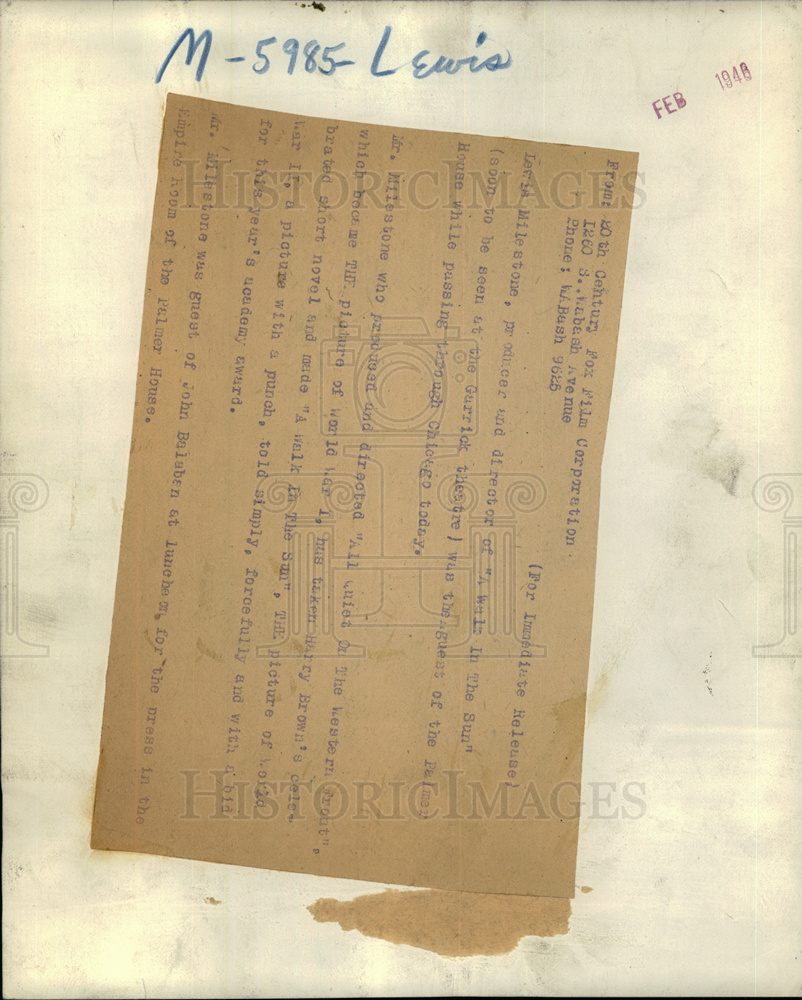 M-5985-Lewis
FEB 1946
From: 20th Century Fox Film Corporation.
1260 S. Wabash Avenue
Phone: WABash 9625
(For Immediate Release)
Lewis Milestone, producer and director of "A Walk In The Sun"
(soon to be seen at the Garrick theatre) was the guest of the Palmer
House while passing through Chicago today.
Mr. Milestone who produced and directed "All Quiet On The Western Front",
which became THE picture of World War I, has taken Harry Brown's cele-
brated short novel and made "A Walk In The Sun", THE picture of World
War II, a picture with a punch, told simply, forcefully and with a bid
for this year's academy award.
Mr. Milestone was guest of John Balaban at luncheon, for the press in the
Empire Room of the Palmer House.
HISTORIC IMAGES
HISTORIC IMAGES